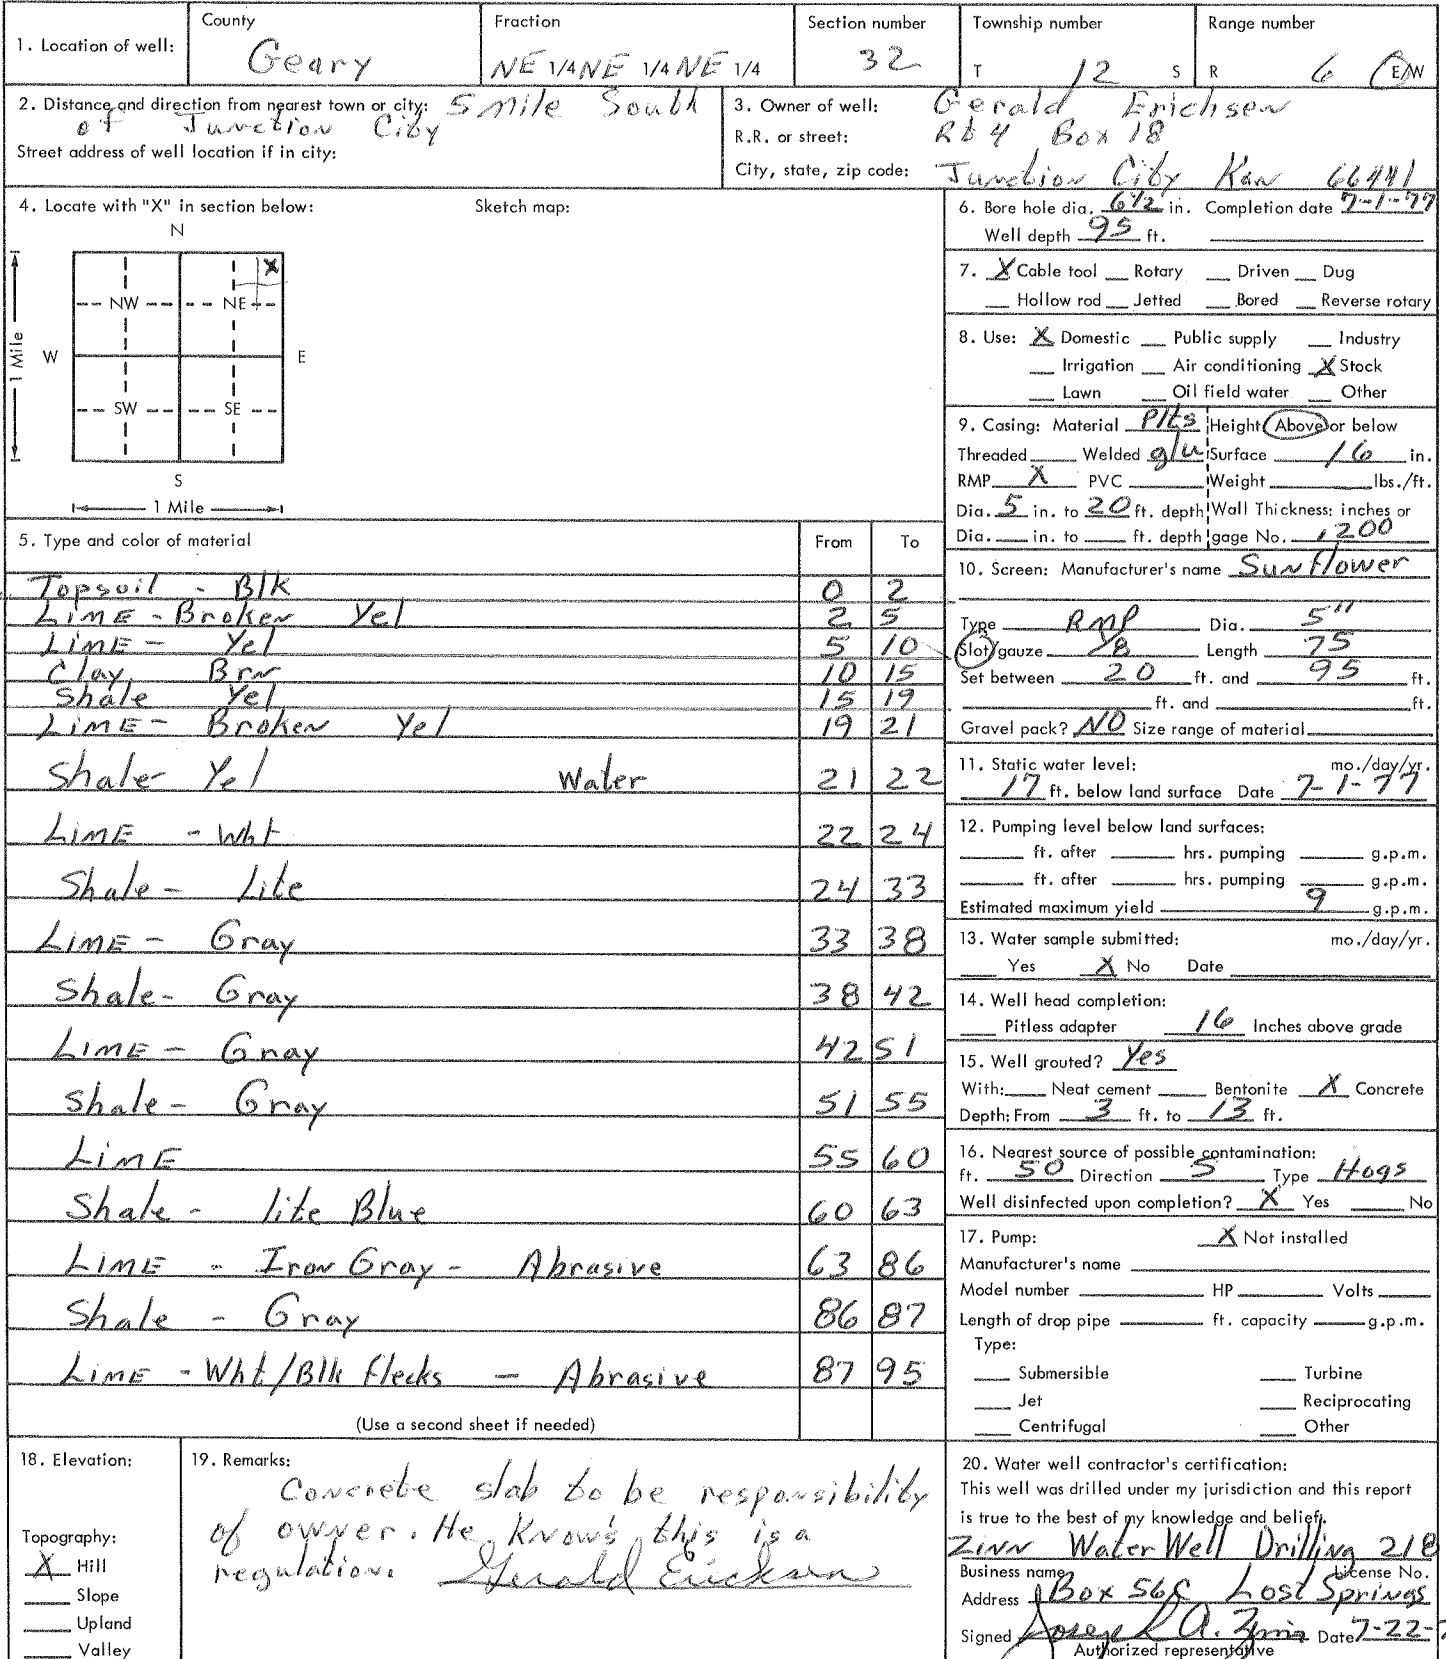 1. Location of well: County Geary Fraction NE 1/4 NE 1/4 NE 1/4 Section number 32 Township number T 12 S Range number R 6 E/W
2. Distance and direction from nearest town or city: 5 mile South
of Junction City
Street address of well location if in city:
3. Owner of well: Gerald Erichsen
R.R. or street: Rt 4 Box 18
City, state, zip code: Junction City Kan 66441
4. Locate with "X" in section below: Sketch map:
N
X
NW NE
W E
1 Mile
SW SE
S
1 Mile
5. Type and color of material From To
Topsoil - Blk 0 2
LIME - Broken Yel 2 5
LIME - Yel 5 10
Clay Brn 10 15
Shale Yel 15 19
LIME - Broken Yel 19 21
Shale - Yel Water 21 22
LIME - Wht 22 24
Shale - Lite 24 33
LIME - Gray 33 38
Shale - Gray 38 42
LIME - Gray 42 51
Shale - Gray 51 55
LIME 55 60
Shale - lite Blue 60 63
LIME - Iron Gray - Abrasive 63 86
Shale - Gray 86 87
LIME - Wht/Blk Flecks - Abrasive 87 95
(Use a second sheet if needed)
6. Bore hole dia. 6 1/2 in. Completion date 7-1-77
Well depth 95 ft.
7. X Cable tool Rotary Driven Dug
Hollow rod Jetted Bored Reverse rotary
8. Use: X Domestic Public supply Industry
Irrigation Air conditioning X Stock
Lawn Oil field water Other
9. Casing: Material Plts Height Above or below
Threaded Welded glu Surface 16 in.
RMP X PVC Weight lbs./ft.
Dia. 5 in. to 20 ft. depth Wall Thickness: inches or
Dia. in. to ft. depth gage No. .200
10. Screen: Manufacturer's name Sunflower
Type RMP Dia. 5"
Slot/gauze 1/8 Length 75
Set between 20 ft. and 95 ft.
ft. and ft.
Gravel pack? NO Size range of material
11. Static water level: mo./day/yr.
17 ft. below land surface Date 7-1-77
12. Pumping level below land surfaces:
ft. after hrs. pumping g.p.m.
ft. after hrs. pumping g.p.m.
Estimated maximum yield 9 g.p.m.
13. Water sample submitted: mo./day/yr.
Yes X No Date
14. Well head completion:
Pitless adapter 16 Inches above grade
15. Well grouted? Yes
With: Neat cement Bentonite X Concrete
Depth: From 3 ft. to 13 ft.
16. Nearest source of possible contamination:
ft. 50 Direction S Type Hogs
Well disinfected upon completion? X Yes No
17. Pump: X Not installed
Manufacturer's name
Model number HP Volts
Length of drop pipe ft. capacity g.p.m.
Type:
Submersible Turbine
Jet Reciprocating
Centrifugal Other
18. Elevation:
Topography:
X Hill
Slope
Upland
Valley
19. Remarks:
Concrete slab to be responsibility
of owner. He Knows this is a
regulation. Gerald Ericksen
20. Water well contractor's certification:
This well was drilled under my jurisdiction and this report
is true to the best of my knowledge and belief.
Zinn Water Well Drilling 218
Business name License No.
Address Box 56C Lost Springs
Signed Joseph A. Zinn Date 7-22-
Authorized representative